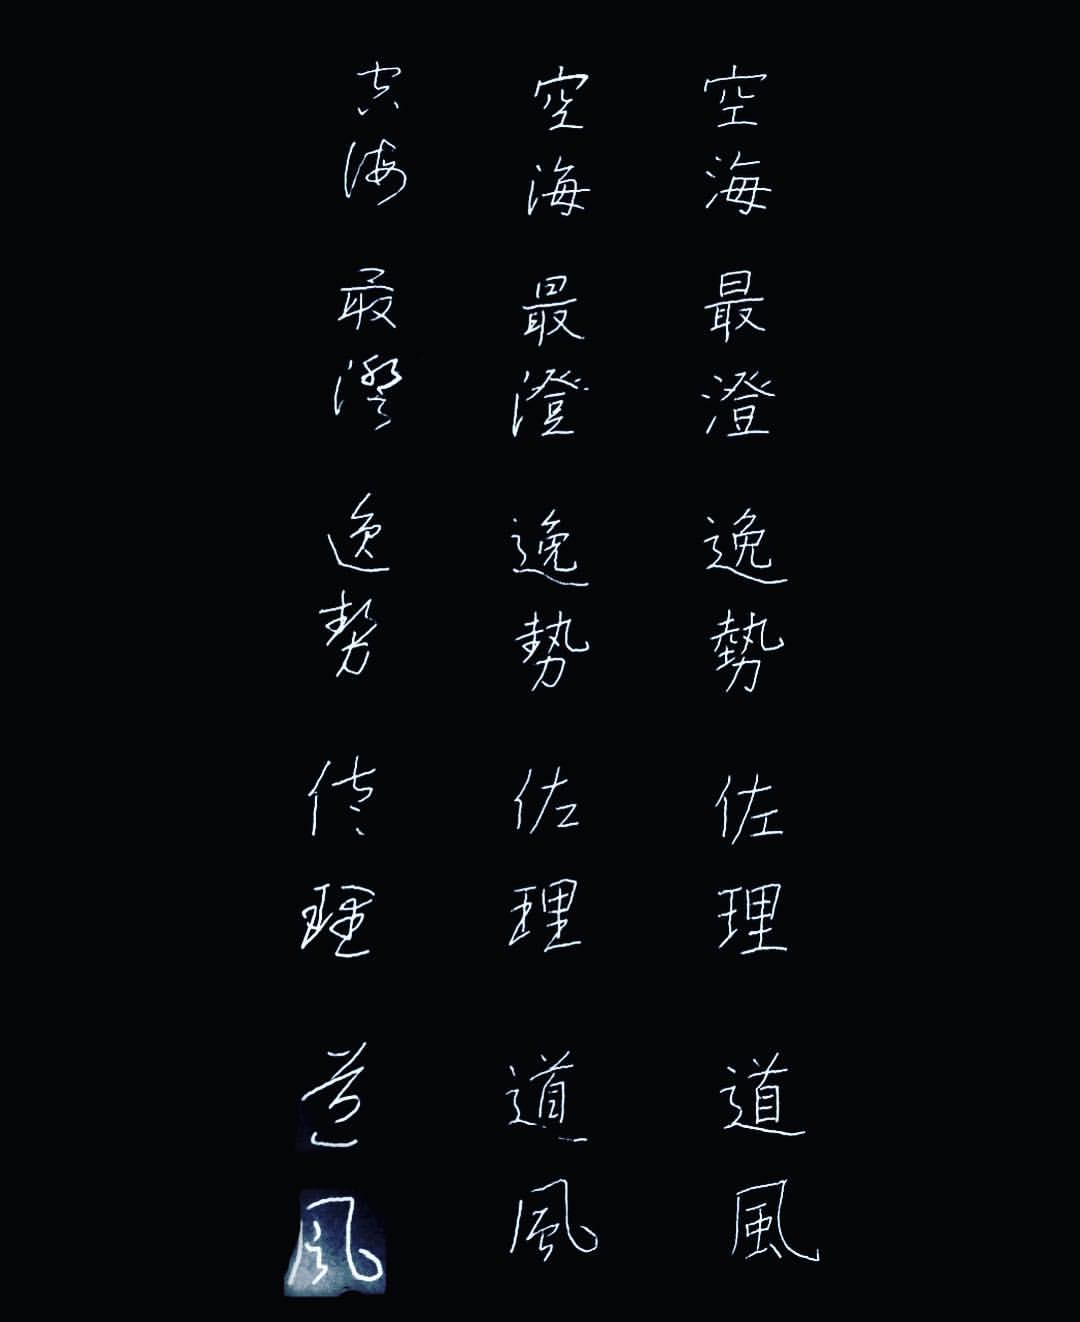 空海 最澄 逸勢 佐理 道風
空海 最澄 逸勢 佐理 道風
空海 最澄 逸勢 佐理 道風